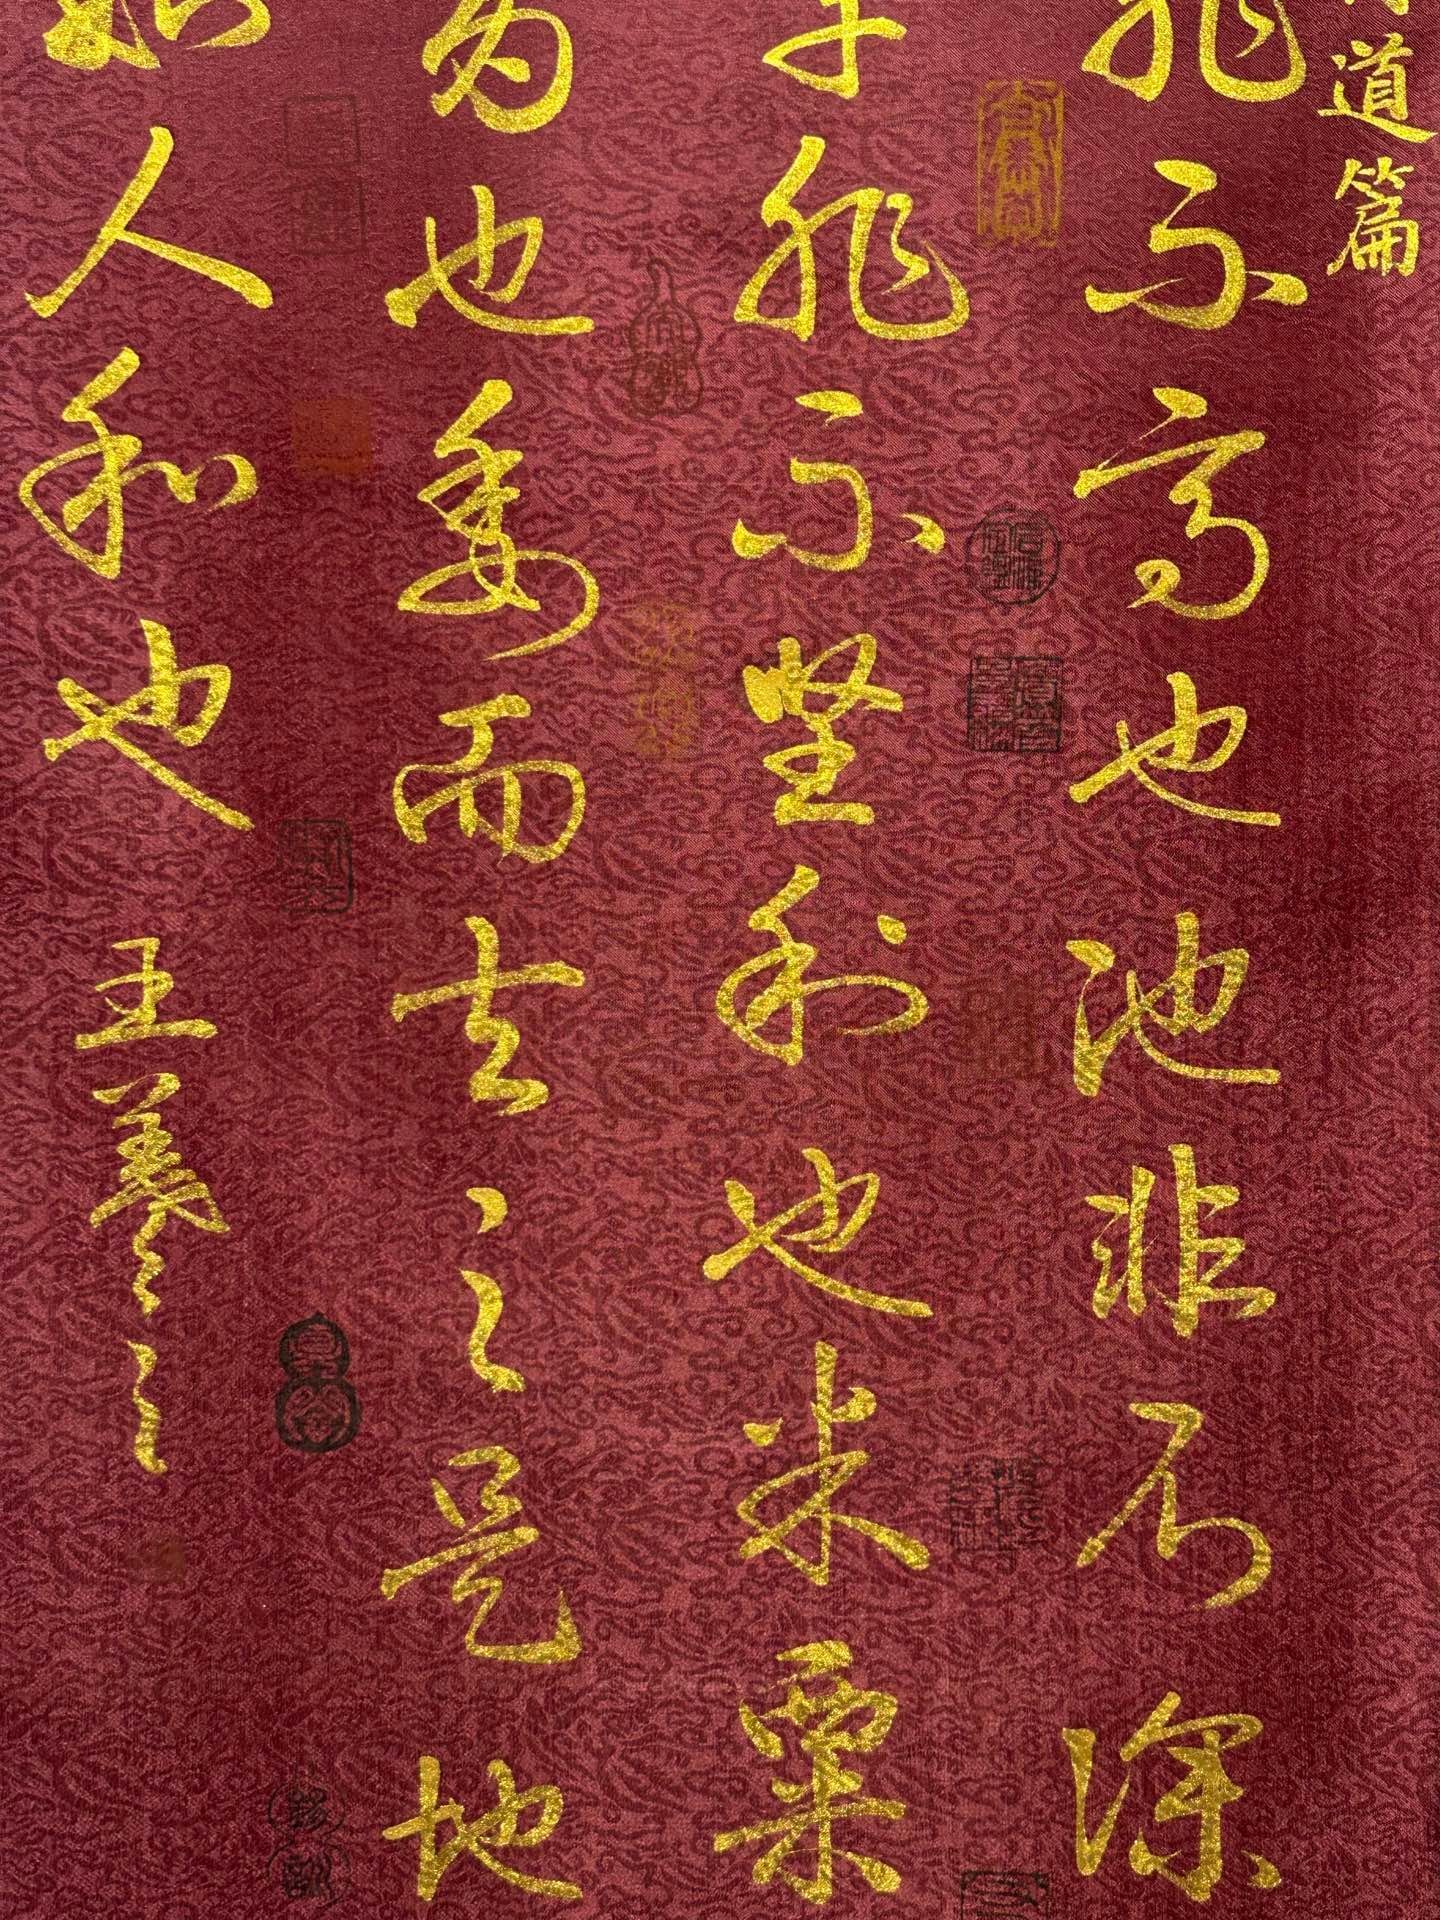 道篇
非不高也池非不深
革非不坚利也米粟
为也委而去之是地
如人和也 王羲之